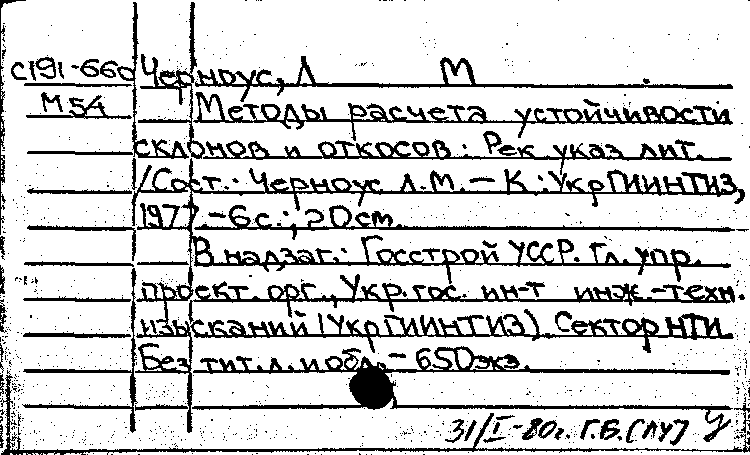 С191-660 Черноус, Л М.
М54 Методы расчета устойчивости
склонов и откосов: Рек указ лит.
/Сост.: Черноус Л.М. – К.: УкрГИИНТИЗ,
1977. – 6 с.; 20 см.
В надзаг.: Госстрой УССР. Гл. упр.
проект. орг., Укр. гос. ин-т инж.-техн.
изысканий (УкрГИИНТИЗ). Сектор НТИ.
Без тит. л. и обл. – 650 экз.
31/I-80г. Г.Б. (ЛУ)